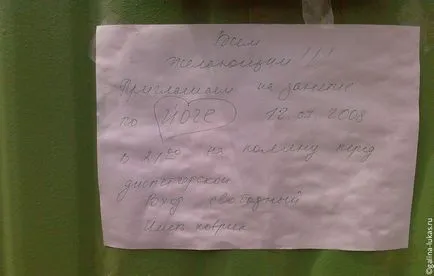 Всем
желающим!!!
Приглашаем на занятие
по йоге 12.07 2008
в 21 00 на поляну перед
диспетчерской
Вход свободный
Иметь коврик
©galina-lukas.ru